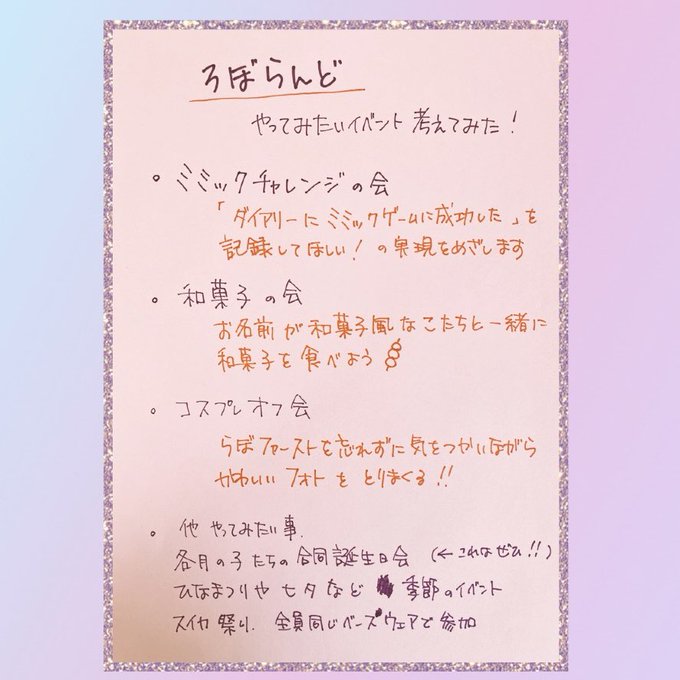 ろぼらんど
やってみたいイベント考えてみた!
• ミミックチャレンジの会
「ダイアリーにミミックゲームに成功した」を
記録してほしい!の実現をめざします
• 和菓子の会
お名前が和菓子風なこたちと一緒に
和菓子を食べよう
• コスプレオフ会
らぼファーストを忘れずに気をつかいながら
かわいいフォトをとりまくる!!
• 他やってみたい事.
各月の子たちの合同誕生日会(←これはぜひ!!)
ひなまつりや七夕など季節のイベント
スイカ祭り.全員同じベースウェアで参加